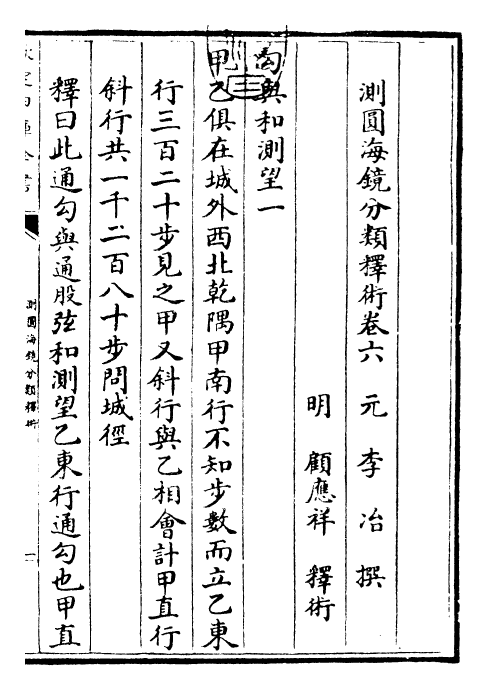 測圓海鏡分類釋術卷六　元　李　冶　撰
明　顧應祥　釋術
勾與和測望一
甲乙俱在城外西北乾隅甲南行不知步數而立乙東
行三百二十步見之甲又斜行與乙相會計甲直行
斜行共一千二百八十步問城徑
釋曰此通勾與通股弦和測望乙東行通勾也甲直
測圓海鏡分類釋術
一